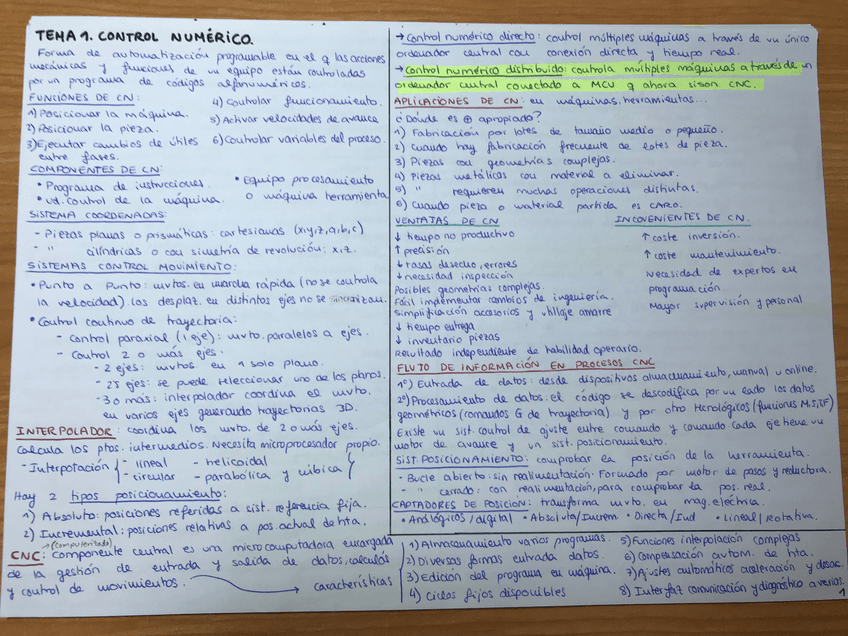 TEMA 1. CONTROL NUMÉRICO.
Forma de automatización programable en el q las acciones
mecánicas y funciones de un equipo están controladas
por un programa de códigos alfanuméricos.
FUNCIONES DE CN:
1) Posicionar la máquina.
2) Posicionar la pieza.
3) Ejecutar cambios de útiles
entre fases.
4) Controlar funcionamiento.
5) Activar velocidades de avance
6) Controlar variables del proceso.
COMPONENTES DE CN:
• Programa de instrucciones.
• Ud. Control de la máquina.
• Equipo procesamiento
o máquina herramienta
SISTEMA COORDENADAS:
- Piezas planas o prismáticas: cartesianas (x,y,z,a,b,c)
- " cilíndricas o con simetría de revolución: x,z.
SISTEMAS CONTROL MOVIMIENTO:
• Punto a Punto: mvtos. en marcha rápida (no se controla
la velocidad). Los desplaz. en distintos ejes no se sincronizan.
• Control continuo de trayectoria:
- Control paraxial (1 eje): mvto. paralelos a ejes.
- Control 2 o más ejes:
- 2 ejes: mvtos. en 1 solo plano.
- 2'5 ejes: se puede seleccionar uno de los planos.
- 3 o más: interpolador coordina el mvto.
en varios ejes generando trayectorias 3D.
INTERPOLADOR: coordina los mvto. de 2 o más ejes.
Calcula los ptos. intermedios. Necesita microprocesador propio.
- Interpolación { - lineal - helicoidal
- circular - parabólica y cúbica }
Hay 2 tipos posicionamiento:
1) Absoluto: posiciones referidas a sist. referencia fija.
2) Incremental: posiciones relativas a pos. actual de hta.
→ (computerizado)
CNC: componente central es una microcomputadora encargada
de la gestión de entrada y salida de datos, cálculos
y control de movimientos. → características
→ Control numérico directo: control múltiples máquinas a través de un único
ordenador central con conexión directa y tiempo real.
→ Control numérico distribuido: controla múltiples máquinas a través de un
ordenador central conectado a MCU q ahora si son CNC.
APLICACIONES DE CN: en máquinas herramientas...
¿Dónde es ⊕ apropiado?
1) Fabricación por lotes de tamaño medio o pequeño.
2) Cuando hay fabricación frecuente de lotes de pieza.
3) Piezas con geometrías complejas.
4) Piezas metálicas con material a eliminar.
5) " requieren muchas operaciones distintas.
6) Cuando pieza o material partida es caro.
VENTAJAS DE CN
↓ tiempo no productivo
↑ precisión
↓ tasas desecho, errores
↓ necesidad inspección
Posibles geometrías complejas.
Fácil implementar cambios de ingeniería.
Simplificación accesorios y utillaje amarre
↓ tiempo entrega
↓ inventario piezas
Resultado independiente de habilidad operario.
INCOVENIENTES DE CN.
↑ coste inversión.
↑ coste mantenimiento.
Necesidad de expertos en
programación
Mayor supervisión y personal
FLUJO DE INFORMACIÓN EN PROCESOS CNC
1º) Entrada de datos: desde dispositivos almacenamiento, manual u online.
2º) Procesamiento de datos: el código se descodifica por un lado los datos
geométricos (comandos G de trayectoria) y por otro tecnológicos (funciones M,S,T,F)
Existe un sist. control de ajuste entre comando y comando. Cada eje tiene un
motor de avance y un sist. posicionamiento.
SIST. POSICIONAMIENTO: comprobar la posición de la herramienta.
- Bucle abierto: sin realimentación. Formado por motor de pasos y reductora.
- " cerrado: con realimentación, para comprobar la pos. real.
CAPTADORES DE POSICIÓN: transforma mvto. en mag. eléctrica.
• Analógicos/digital • Absoluta/Increm • Directa/Ind • Lineal/Rotativa.
1) Almacenamiento varios programas.
2) Diversas formas entrada datos.
3) Edición del programa en máquina.
4) Ciclos fijos disponibles
5) Funciones interpolación complejas
6) Compensación autom. de hta.
7) Ajustes automáticos aceleración y desac.
8) Interfaz comunicación y diagnóstico averías.
1